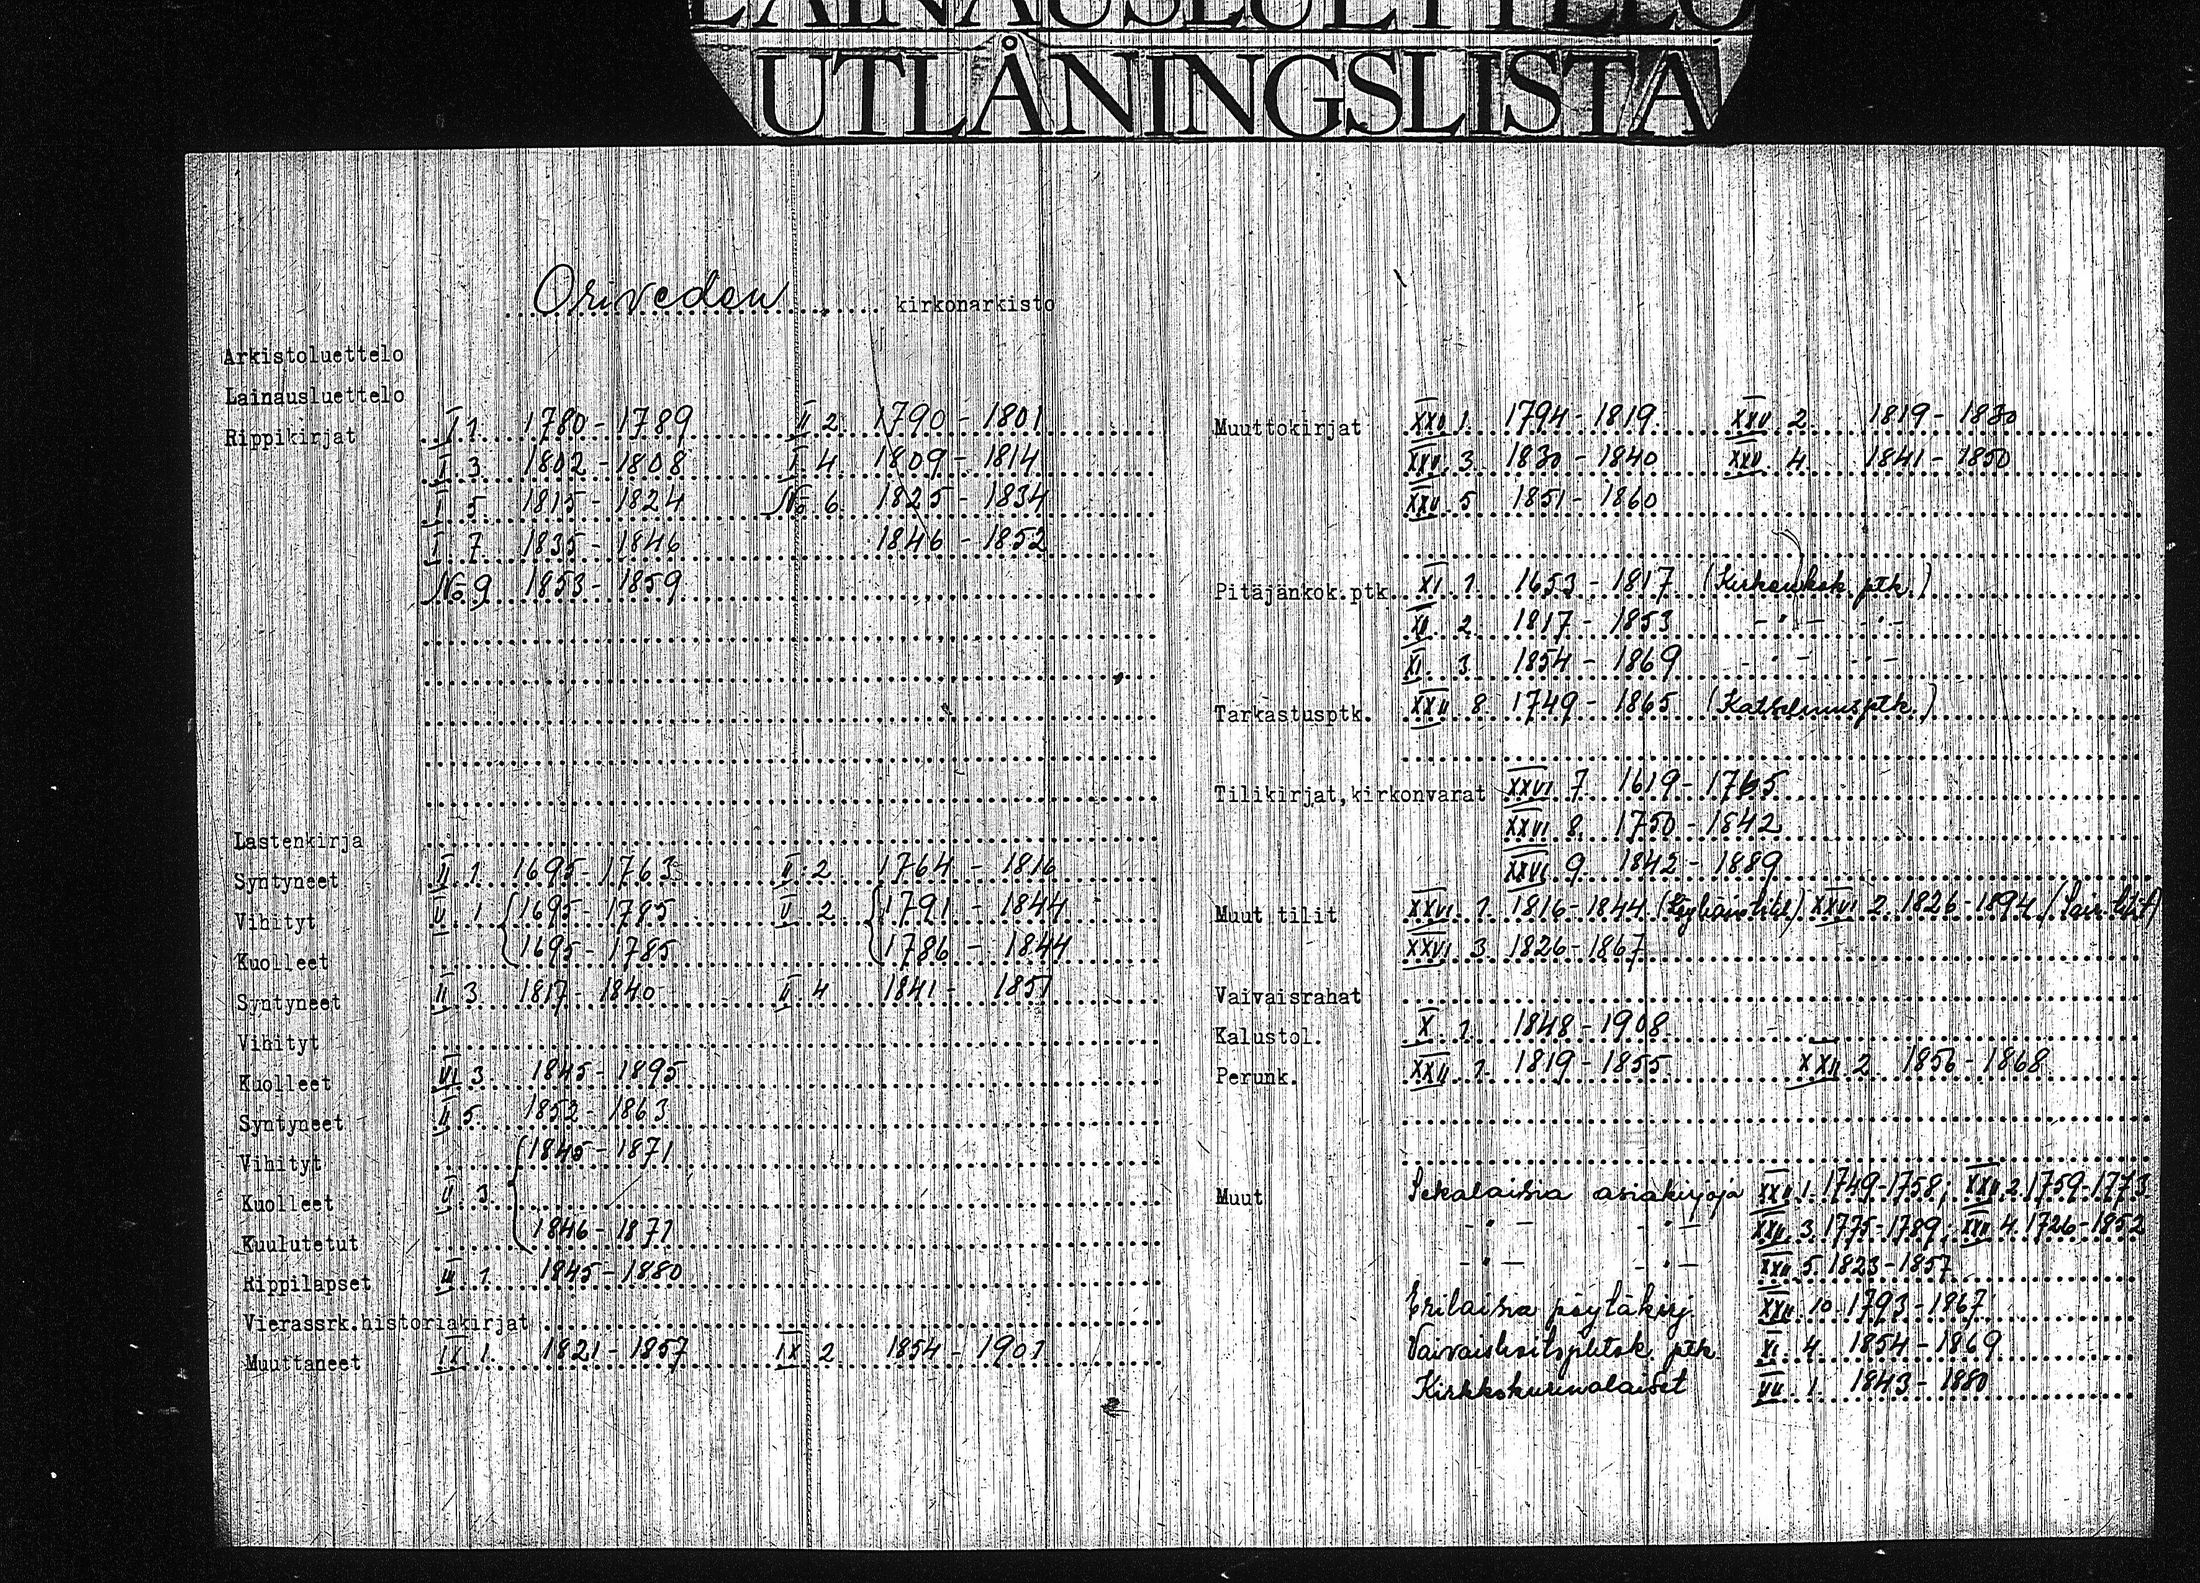 LAINAUSLUETTELO
UTLÅNINGSLISTA
Oriveden kirkonarkisto
Arkistoluettelo
Lainausluettelo
Rippikirjat I 1. 1780-1789 II 2. 1790-1801
I 3. 1802-1808 I 4. 1809-1814
I 5. 1815-1824 No 6. 1825-1834
I 7. 1835-1846 1846-1852
No 9 1853-1859
Lastenkirja
Syntyneet II 1. 1695-1763 II 2. 1764-1816
Vihityt II 1 1695-1785 II 2. 1791-1844
Kuolleet 1695-1785 1786-1844
Syntyneet II 3. 1817-1840 II 4 1841-1851
Vihityt
Kuolleet VI 3. 1845-1895
Syntyneet II 5. 1852-1863
Vihityt 1845-1871
Kuolleet II 3.
Kuulutetut 1846-1871
Rippilapset III 1. 1845-1880
Vierassrk.historiakirjat
Muuttaneet IX 1. 1821-1857 IX 2. 1854-1901
Muuttokirjat XXV 1. 1794-1819. XXV 2. 1819-1830
XXV 3. 1830-1840 XXV 4. 1841-1850
XXV 5 1851-1860
Pitäjänkok.ptk. XI 1. 1653-1817 (Kirkonkok. ptk.)
XI 2. 1817-1853 -"- -"-
XI 3. 1854-1869 -"- -"-
Tarkastusptk. XXII 8. 1749-1865 (Katselmusptk.)
Tilikirjat,kirkonvarat XXVI 7. 1619-1765
XXVI 8. 1750-1842
XXVI 9. 1842-1889
Muut tilit XXVI 1. 1816-1844 XXVI 2. 1826-1894
XXVI 3. 1826-1867
Vaivaisrahat
Kalustol. X 1. 1848-1908.
Perunk. XXII 1. 1819-1855. XXII 2. 1856-1868
Muut Sekalaisia asiakirjoja XXII 1. 1749-1758; XXII 2. 1759-1773
-"- -"- XXII 3. 1775-1789; XXII 4. 1726-1852
-"- -"- XXII 5. 1823-1857
Erilaisia pöytäkirj. XXII 10. 1793-1867
Vaivaishoitoyhtek. ptk. XI 4. 1854-1869
Kirkkokurinalaiset VII 1. 1843-1880